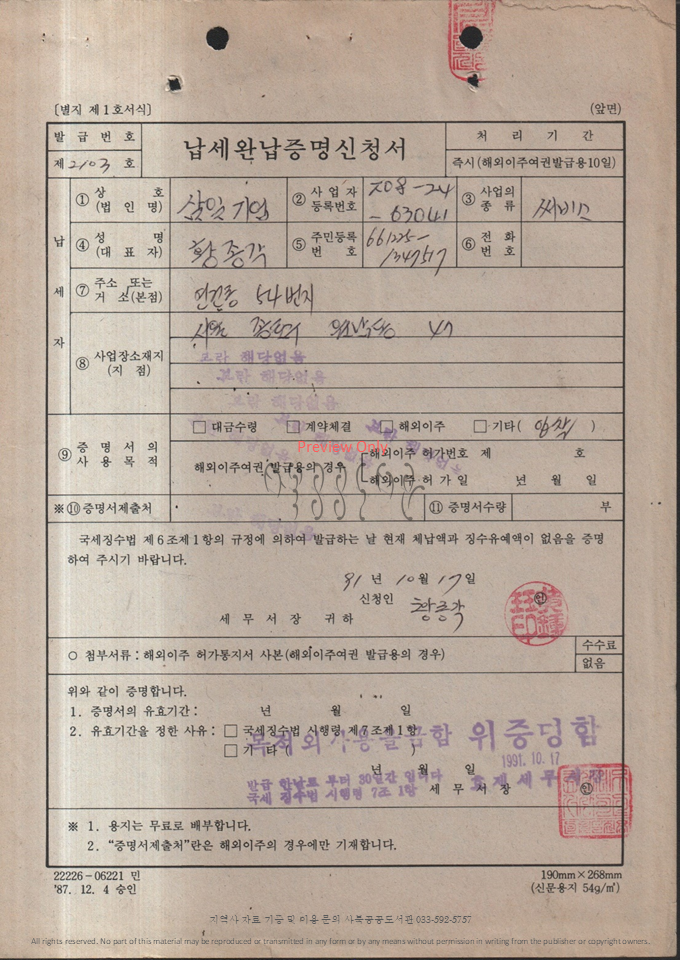 [별지 제1호서식]
(앞면)
발 급 번 호
제 2103 호
납세완납증명신청서
처 리 기 간
즉시(해외이주여권발급용10일)
납 세 자
① 상 호 (법 인 명)
삼일기업
② 사 업 자 등록번호
208-24
-63041
③ 사업의 종 류
써비스
④ 성 명 (대 표 자)
황종각
⑤ 주민등록 번 호
661225-
1347517
⑥ 전 화 번 호
⑦ 주소 또는 거 소(본점)
54번지
⑧ 사업장소재지 (지 점)
47
본란 해당없음
본란 해당없음
본란 해당없음
⑨ 증 명 서 의 사 용 목 적
□ 대금수령 □ 계약체결 □ 해외이주 □ 기타( 입찰 )
PreView Only
해외이주여권 발급용의 경우
해외이주 허가번호 제 호
해외이주 허가일 년 월 일
※⑩ 증명서제출처
⑪ 증명서수량
부
국세징수법 제6조제1항의 규정에 의하여 발급하는 날 현재 체납액과 징수유예액이 없음을 증명
하여 주시기 바랍니다.
91 년 10 월 17 일
신청인 황종각 ㊞
세 무 서 장 귀 하
○ 첨부서류 : 해외이주 허가통지서 사본(해외이주여권 발급용의 경우)
수수료
없음
위와 같이 증명합니다.
1. 증명서의 유효기간 : 년 월 일
2. 유효기간을 정한 사유 : □ 국세징수법 시행령 제7조제1항
□ 기 타 ( )
목적외 사용을금함 위증명함
1991. 10. 17
년 월 일
발급 한날로 부터 30일간 입니다
국세 징수법 시행령 7조 1항
세 무 서 장 ㊞
※ 1. 용지는 무료로 배부합니다.
2. “증명서제출처”란은 해외이주의 경우에만 기재합니다.
22226-06221 민
'87. 12. 4 승인
190mm×268mm
(신문용지 54g/㎡)
지역사 자료 기증 및 이용 문의 사북공공도서관 033-592-5757
All rights reserved. No part of this material may be reproduced or transmitted in any form or by any means without permission in writing from the publisher or copyright owners.